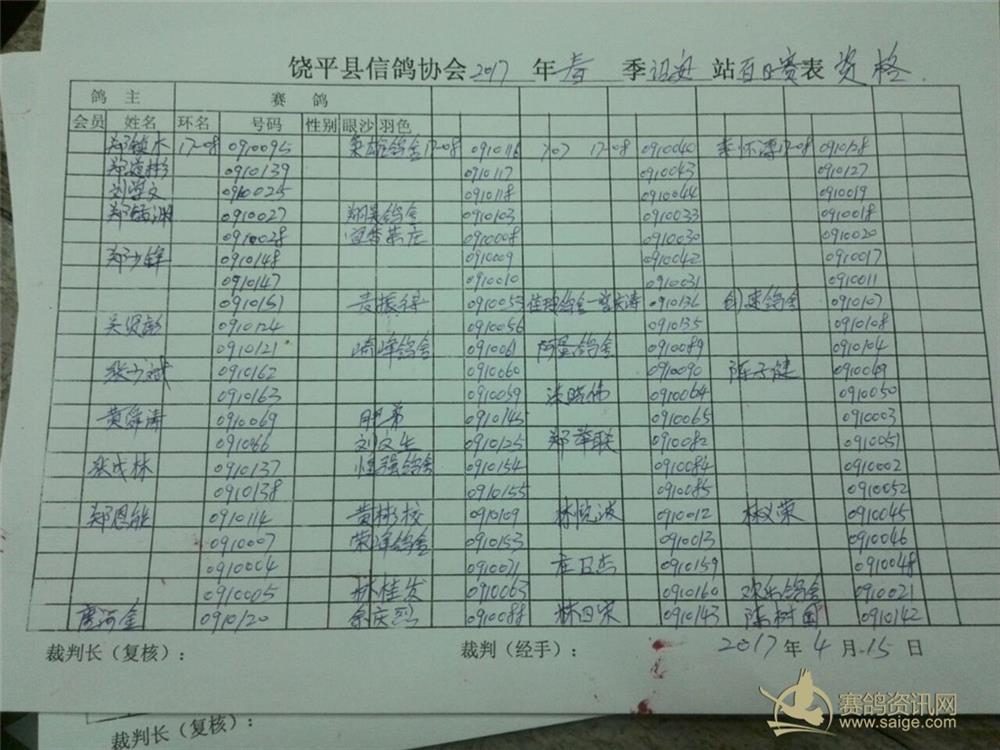 饶平县信鸽协会2017年春季汕尾站百日赛表 资格
鸽主 赛鸽
会员 姓名 环名 号码 性别 眼沙 羽色
郑镇木 17-08 0910095 英雄鸽舍 17-08 0910116 707 17-08 0910040 李怀涛 17-08 0910128
郑道彬 0910139 0910117 0910043 0910127
刘学文 0910025 0910118 0910044 0910019
0910027 翔昊鸽舍 0910103 0910033 0910018
0910028 宜香茶庄 0910008 0910030 0910020
郑少锋 0910148 0910009 0910042 0910017
0910147 0910010 0910031 0910011
0910151 黄振得 0910053 0910136 创速鸽舍 0910107
吴贤彭 0910124 0910056 0910135 0910108
0910121 崎峰鸽舍 0910061 阿蛋鸽舍 0910089 0910104
张少斌 0910162 0910060 0910090 陈子健 0910049
0910163 0910059 洪晓伟 0910064 0910050
黄舜涛 0910069 肥弟 0910145 0910065 0910003
091066 刘文生 0910125 郑举联 0910082 0910051
张戊林 0910137 恒强鸽舍 0910154 0910084 0910002
0910138 0910155 0910085 0910052
郑恩能 0910114 黄彬校 0910109 林悦波 0910012 林义荣 0910045
0910007 荣峰鸽舍 0910153 0910013 0910046
0910004 0910071 庄日杰 0910159 0910048
0910005 林桂发 0910063 0910160 欢乐鸽舍 0910021
詹河金 0910120 余庆烈 0910088 林日荣 0910143 陈树国 0910142
裁判长（复核）： 裁判（经手）： 2017年4月15日
裁判长（复核）：
赛鸽资讯网
www.saige.com